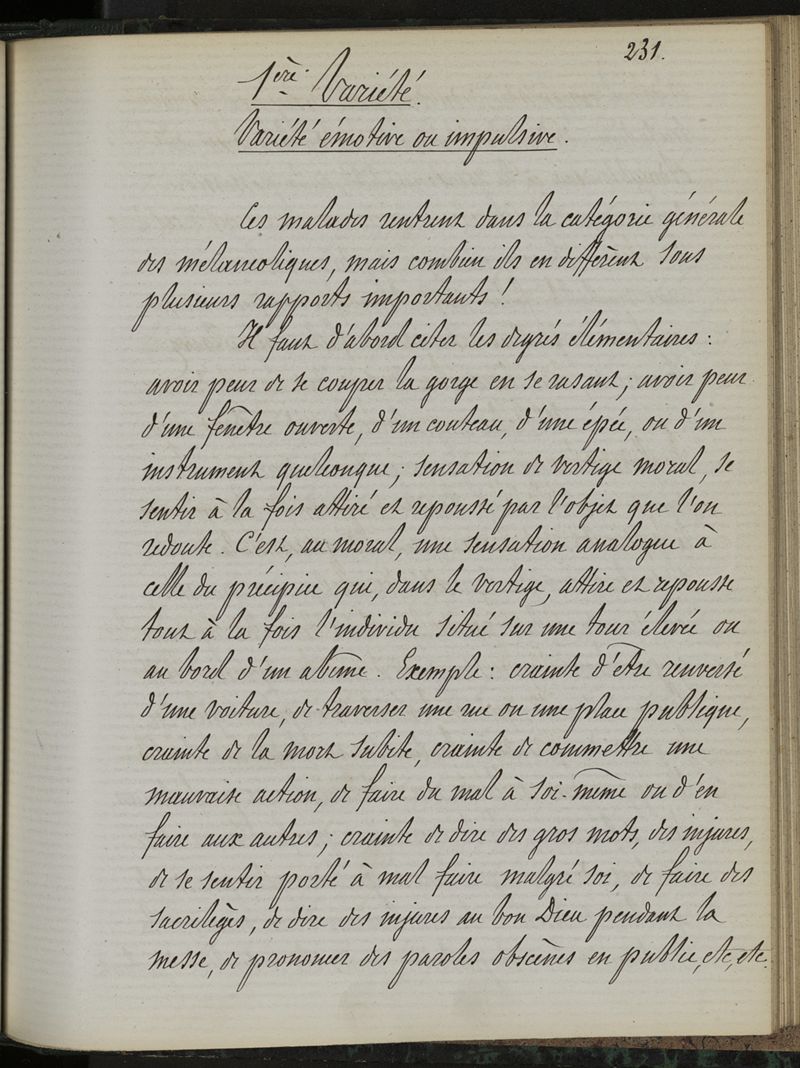 231.
1ère Variété.
Variété émotive ou impulsive.
Ces malades rentrent dans la catégorie générale
des mélancoliques, mais combien ils en diffèrent sous
plusieurs rapports importants !
Il faut d'abord citer les degrés élémentaires :
avoir peur de se couper la gorge en se rasant ; avoir peur
d'une fenêtre ouverte, d'un couteau, d'une épée, ou d'un
instrument quelconque ; sensation de vertige moral, se
sentir à la fois attiré et repoussé par l'objet que l'on
redoute. C'est, au moral, une sensation analogue à
celle du précipice qui, dans le vertige, attire et repousse
tout à la fois l'individu situé sur une tour élevée ou
au bord d'un abîme. Exemple : crainte d'être renversé
d'une voiture, de traverser une rue ou une place publique,
crainte de la mort subite, crainte de commettre une
mauvaise action, de faire du mal à soi-même ou d'en
faire aux autres ; crainte de dire des gros mots, des injures,
de se sentir porté à mal faire malgré soi, de faire des
sacrilèges, de dire des injures au bon Dieu pendant la
messe, de prononcer des paroles obscènes en public, etc, etc.